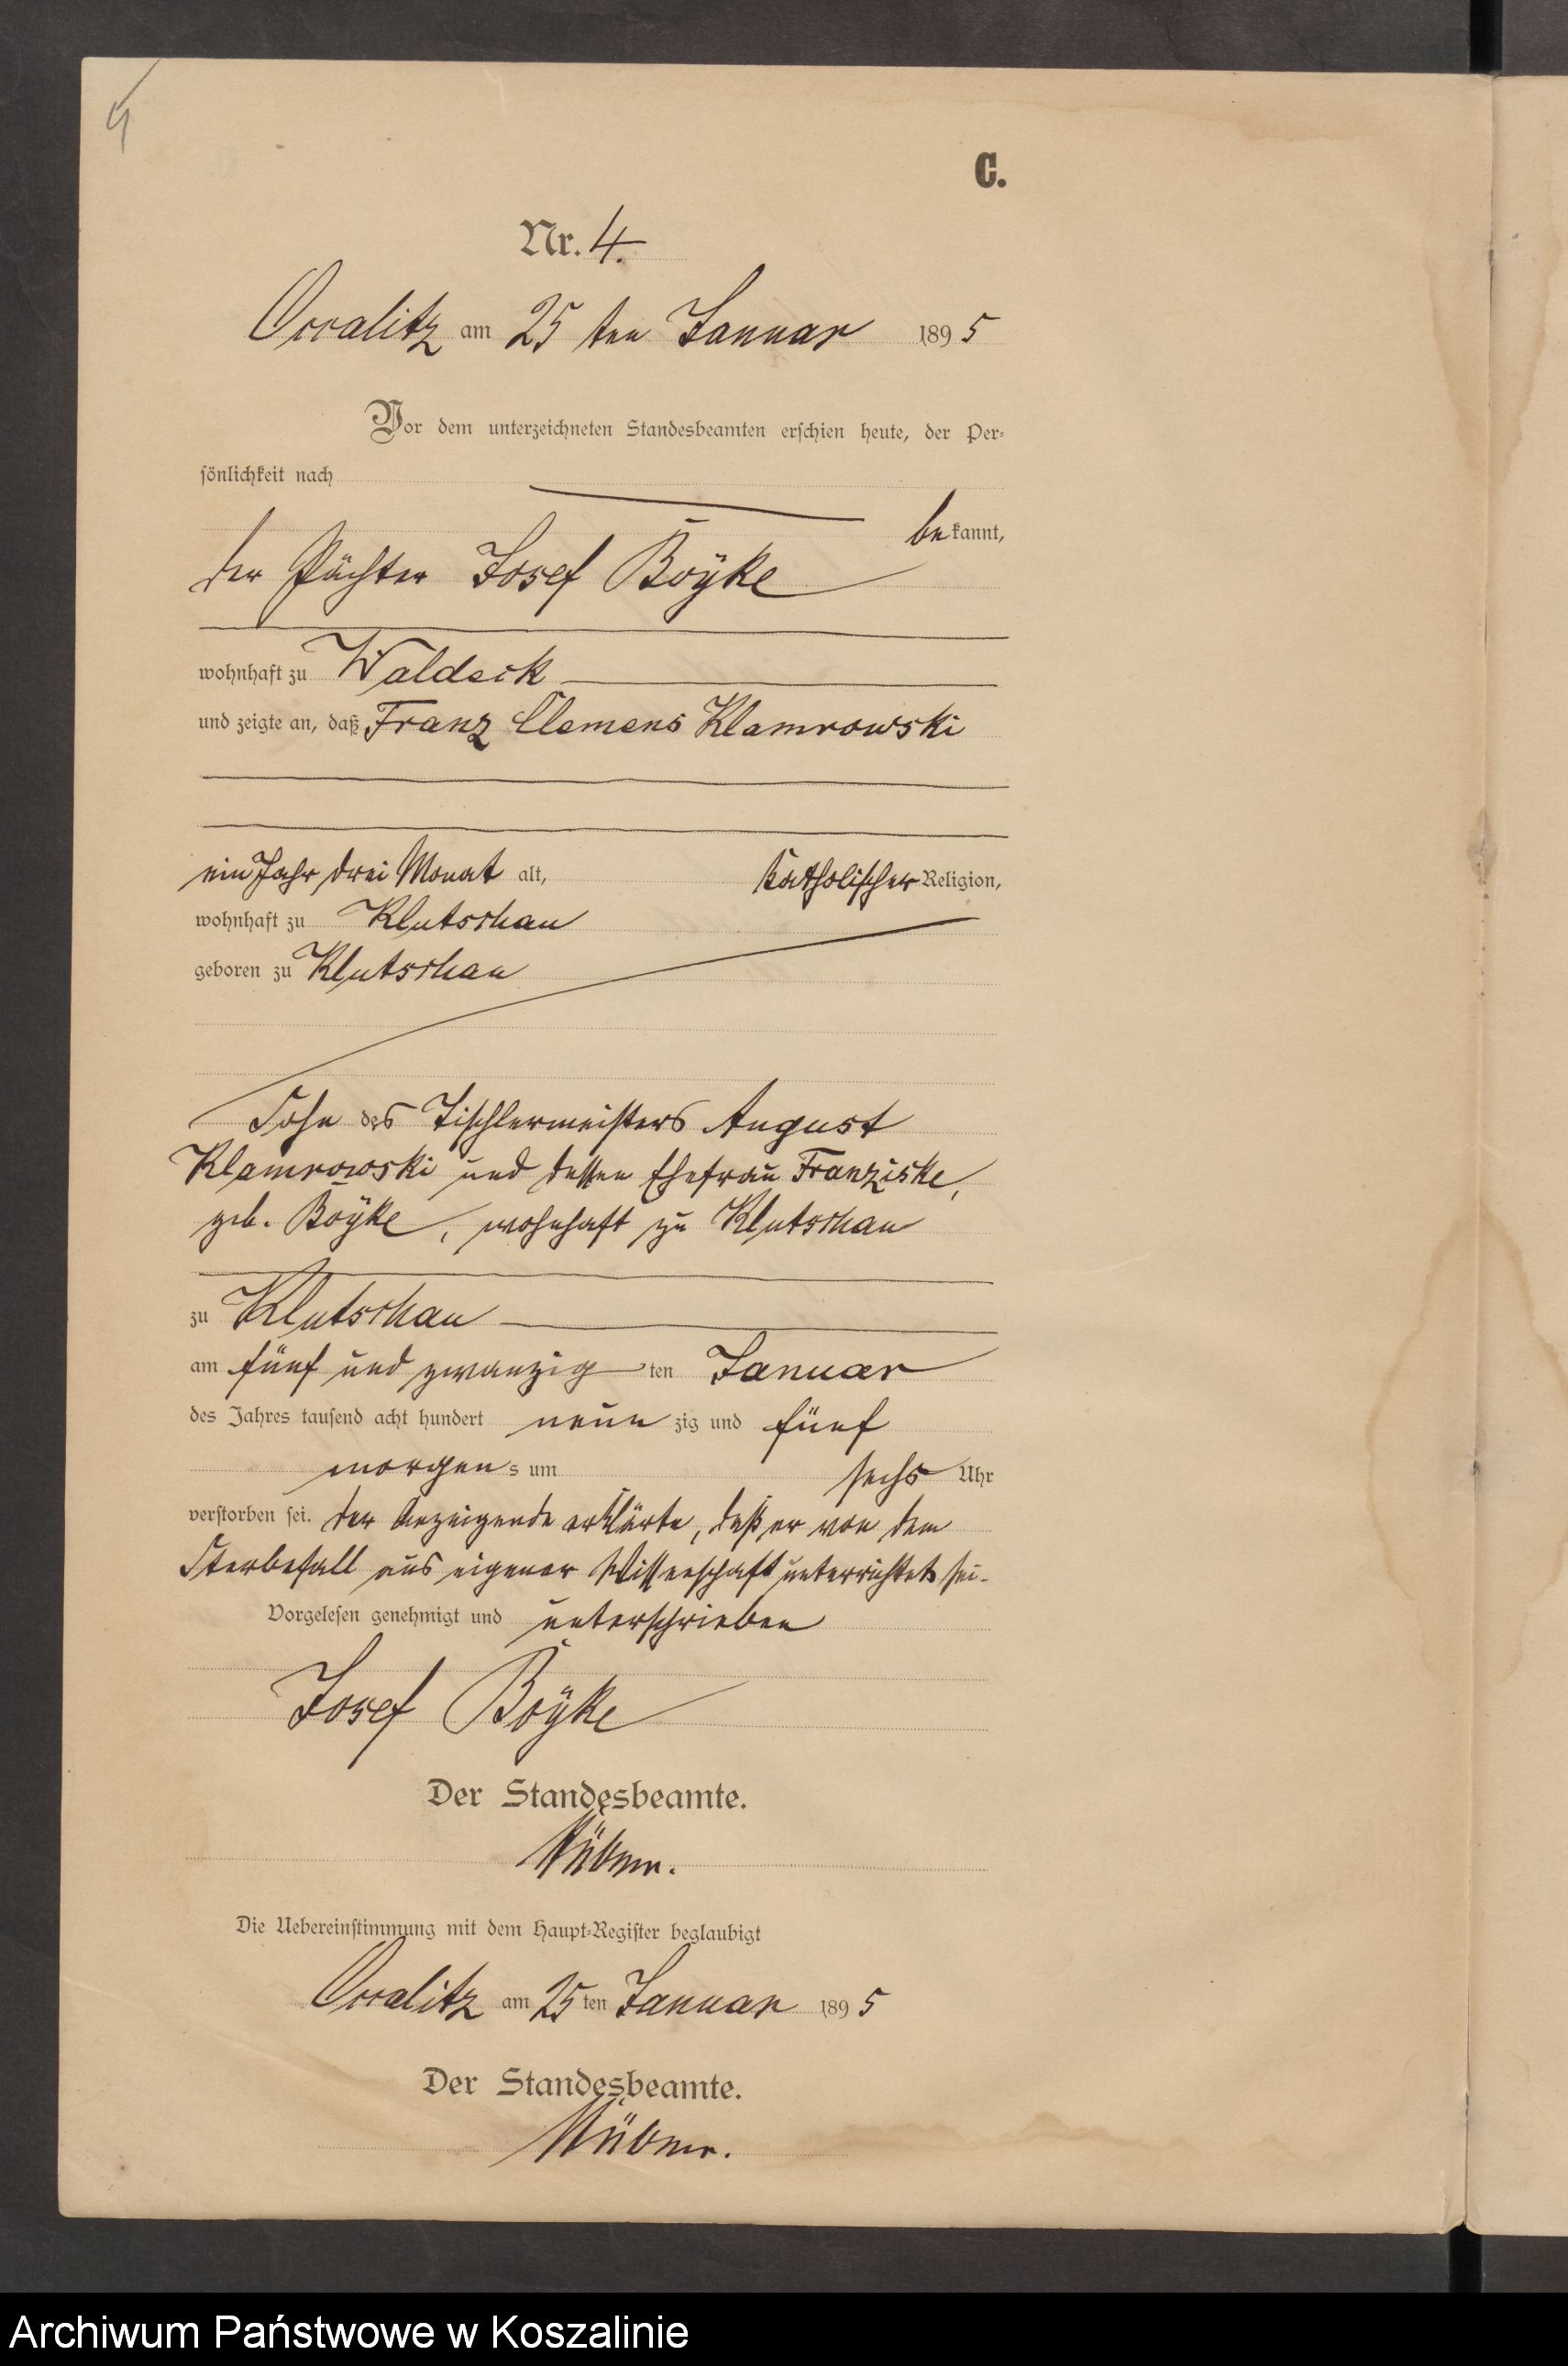 4
C.
Nr. 4.
Occalitz am 25 ten Januar 1895
Vor dem unterzeichneten Standesbeamten erschien heute, der Per-
sönlichkeit nach
bekannt,
der Pächter Josef Böÿke
wohnhaft zu Waldeck
und zeigte an, daß Franz Clemens Klamrowski
ein Jahr drei Monat alt, katholischer Religion,
wohnhaft zu Klutschau
geboren zu Klutschau
Sohn des Tischlermeisters August
Klamrowski und dessen Ehefrau Franziske,
geb. Böÿke, wohnhaft zu Klutschau
zu Klutschau
am fünf und zwanzig ten Januar
des Jahres tausend acht hundert neun zig und fünf
morgens um sechs Uhr
verstorben sei. Der Anzeigende erklärte, daß er von dem
Sterbefall aus eigener Wissenschaft unterrichtet sei.
Vorgelesen genehmigt und unterschrieben
Josef Böÿke
Der Standesbeamte.
Die Uebereinstimmung mit dem Haupt-Register beglaubigt
Occalitz am 25 ten Januar 1895
Der Standesbeamte.
Archiwum Państwowe w Koszalinie